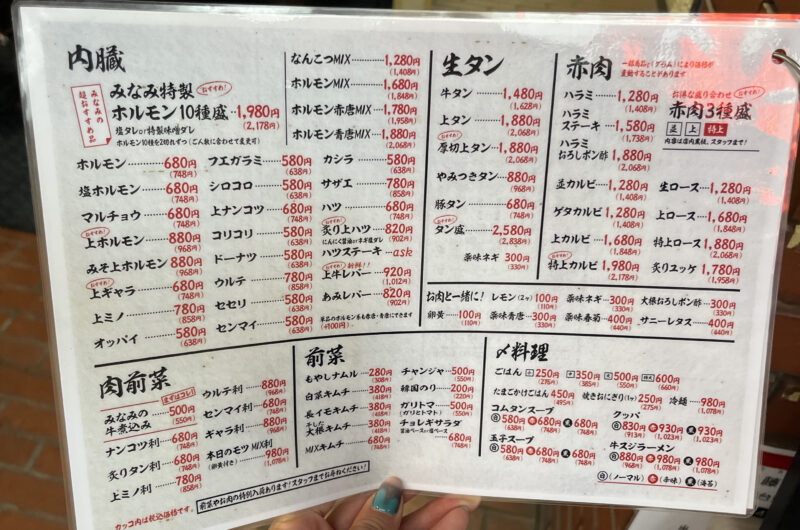 内臓
みなみの
超おすすめ品
みなみ特製 おすすめ!
ホルモン10種盛…1,980円
塩タレor特製味噌ダレ (2,178円)
ホルモン10種を2切れずつ(ご人数に合わせて変更可)
なんこつMIX……1,280円
(1,408円)
ホルモンMIX……1,680円
(1,848円)
ホルモン赤唐MIX…1,780円
(1,958円)
ホルモン青唐MIX…1,880円
(2,068円)
ホルモン……680円
(748円)
塩ホルモン…680円
(748円)
マルチョウ…680円
(748円)
おすすめ!
上ホルモン…880円
(968円)
みそ上ホルモン…880円
(968円)
おすすめ!
上ギャラ……680円
(748円)
上ミノ……780円
(858円)
オッパイ……580円
(638円)
フエガラミ…580円
(638円)
シロコロ……580円
(638円)
上ナンコツ…580円
(638円)
コリコリ……580円
(638円)
ドーナツ……580円
(638円)
ウルテ……780円
(858円)
セセリ……580円
(638円)
センマイ……580円
(638円)
カシラ……580円
(638円)
サザエ……780円
(858円)
ハツ……680円
(748円)
おすすめ!
炙り上ハツ…820円
にんにく醤油orネギ塩ダレ (902円)
ハツステーキ…ask
おすすめ! 新鮮!!
上牛レバー…920円
(1,012円)
あみレバー…820円
(902円)
単品のホルモン系も赤唐・青唐にできます
(+100円)
生タン
牛タン……1,480円
(1,628円)
上タン……1,880円
(2,068円)
おすすめ!
厚切上タン…1,880円
(2,068円)
やみつきタン…880円
(968円)
豚タン……680円
(748円)
おすすめ!
タン盛……2,580円
(2,838円)
薬味ネギ…300円
(330円)
赤肉
変動することがあります
ハラミ……1,280円
(1,408円)
ハラミ
ステーキ…1,580円
(1,738円)
ハラミ
おろしポン酢…1,880円
(2,068円)
お得な盛り合わせ おすすめ!
赤肉3種盛
並 上 特上
内容は店内黒板、スタッフまで!
並カルビ…1,280円
(1,408円)
ゲタカルビ…1,280円
(1,408円)
上カルビ…1,680円
(1,848円)
おすすめ!
特上カルビ…1,980円
(2,178円)
生ロース…1,280円
(1,408円)
上ロース…1,680円
(1,848円)
特上ロース…1,880円
(2,068円)
炙りユッケ…1,780円
(1,958円)
お肉と一緒に!
卵黄…100円
(110円)
レモン(2ヶ)…100円
(110円)
薬味青唐…300円
(330円)
薬味ネギ…300円
(330円)
薬味春菊…400円
(440円)
大根おろしポン酢…300円
(330円)
サニーレタス…400円
(440円)
肉前菜
まずはコレ!
みなみの
牛煮込み……500円
(550円)
ナンコツ刺…680円
(748円)
炙りタン刺…880円
(968円)
上ミノ刺……780円
(858円)
ウルテ刺……880円
(968円)
センマイ刺…680円
(748円)
ギャラ刺……880円
(968円)
本日のモツMIX刺
(卵黄付き)…980円
(1,078円)
前菜やお肉の特別入荷あります!スタッフまでお尋ねください!
カッコ内は税込価格です。
前菜
もやしナムル…280円
(308円)
白菜キムチ…380円
(418円)
長イモキムチ…380円
(418円)
干した
大根キムチ…380円
(418円)
MIXキムチ……680円
(748円)
チャンジャ…500円
(550円)
韓国のり……200円
(220円)
ガリトマ……500円
(ガリとトマト) (550円)
チョレギサラダ
醤油ベースor塩ベース
……680円
(748円)
〆料理
ごはん…小250円 中350円 大500円 特大600円
(275円) (385円) (550円) (660円)
たまごかけごはん…450円
(495円)
焼きおにぎり(1ヶ)…250円
(275円)
冷麺…980円
(1,078円)
コムタンスープ
白580円 赤680円 黒680円
(638円) (748円) (748円)
玉子スープ
白580円 赤680円 黒680円
(638円) (748円) (748円)
クッパ
白830円 赤930円 黒930円
(913円) (1,023円) (1,023円)
牛スジラーメン
白880円 赤980円 黒980円
(968円) (1,078円) (1,078円)
白(ノーマル) 赤(辛味) 黒(海苔)